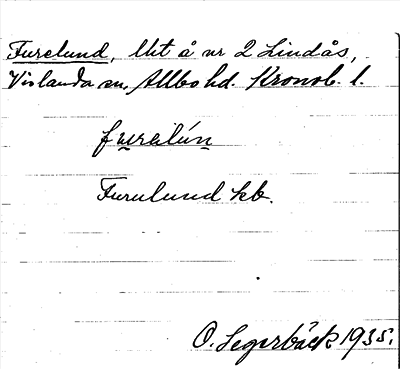 Furelund, lht å nr 2 Lindås,
Vislanda sn, Allbo hd. Kronob. l.
furelún
Furulund kb.
O. Segerbäck 1935.